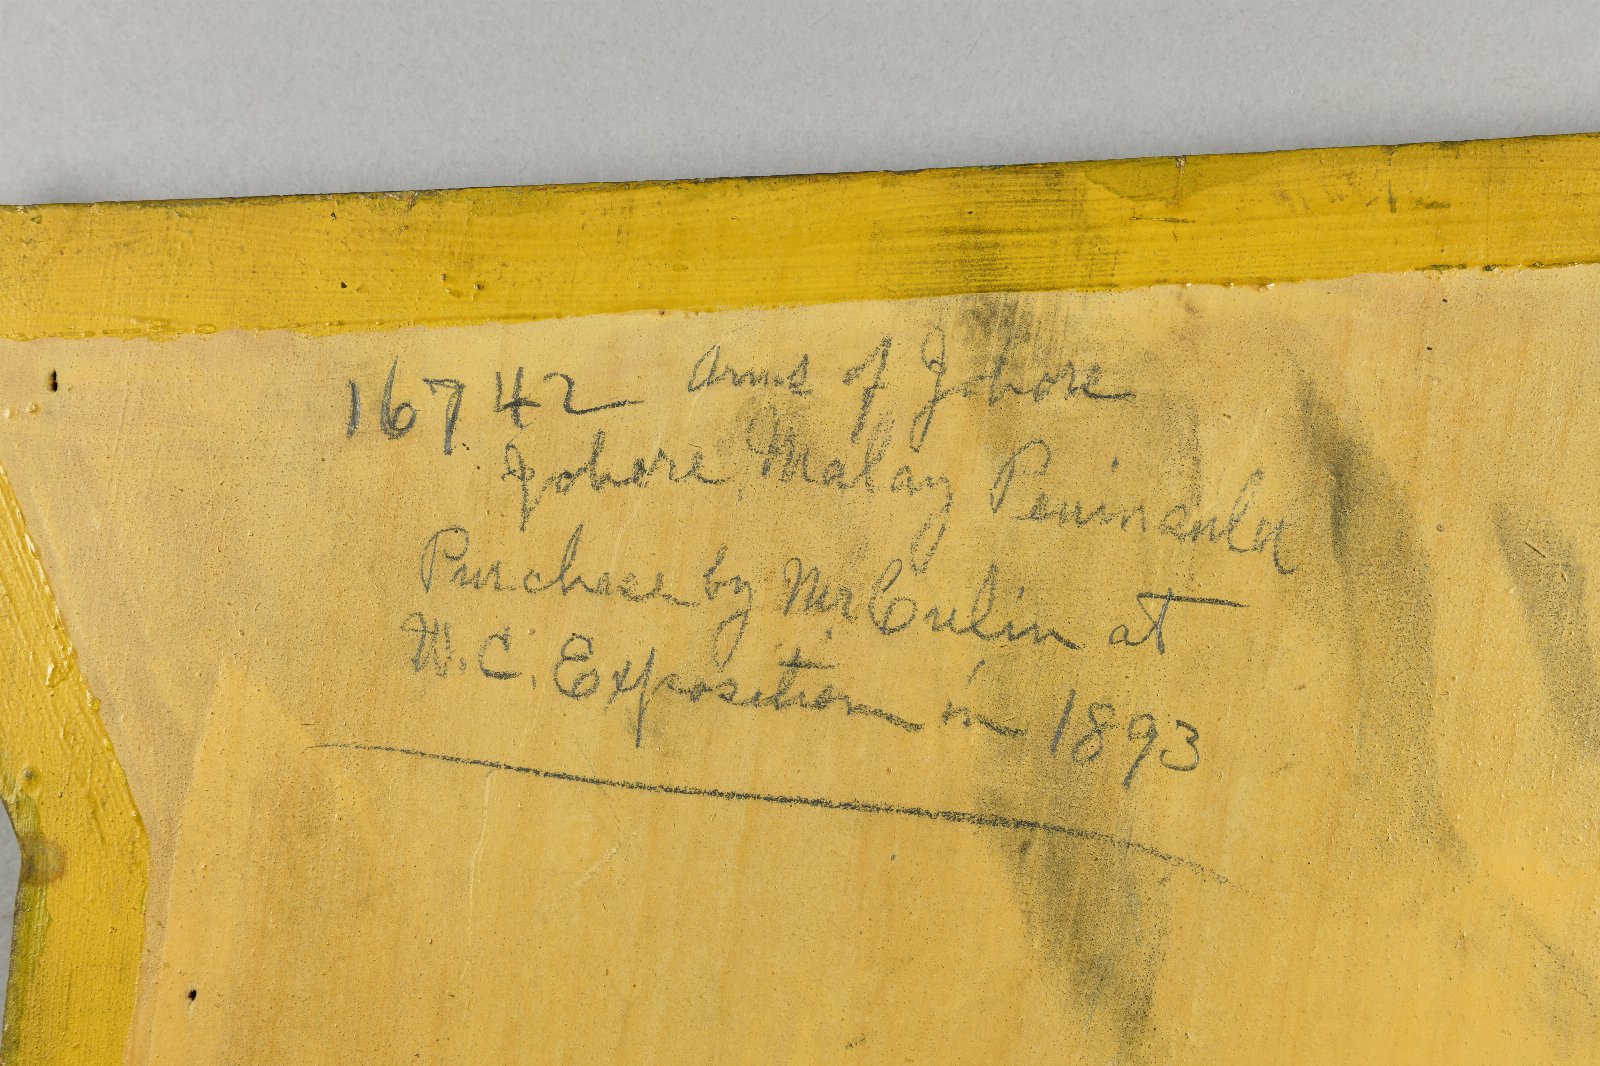 16742 Arms of Johore
Johore, Malay Peninsula
Purchase by Mr Culin at
W. C. Exposition in 1893